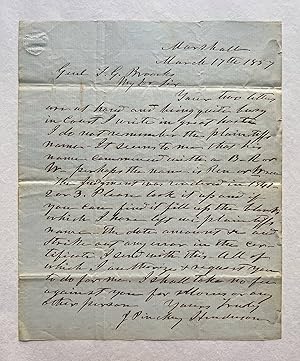 Marshall
March 17th 1857
Genl T. G. Brooks
My Dr Sir
Your two letters
are at hand and being quite busy
in Court I write in great haste
I do not remember the plaintiffs
name. It seems to me that his
name commenced with a B. R or
W. perhaps the name is
The Judgment was rendered in 1841
2 or 3. Please look it up and if
you can find it fill up the blanks
which I have left as plaintiffs
name the date amount &c and
strike out any error in the cer-
tificate I send with this. All of
which I authorize & request you
to do for me. I shall take no fee
against you for or any
other person Yours Truly
J Pinckney Henderson